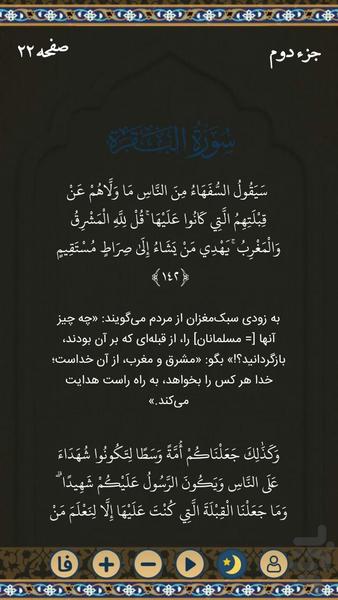 جزء دوم
صفحه ۲۲
سُورَةُ الْبَقَرَة
سَيَقُولُ السُّفَهَاءُ مِنَ النَّاسِ مَا وَلَّاهُمْ عَنْ
قِبْلَتِهِمُ الَّتِي كَانُوا عَلَيْهَا ۚ قُلْ لِلَّهِ الْمَشْرِقُ
وَالْمَغْرِبُ ۚ يَهْدِي مَنْ يَشَاءُ إِلَىٰ صِرَاطٍ مُسْتَقِيمٍ
﴿١٤٢﴾
به زودی سبک‌مغزان از مردم می‌گویند: «چه چیز
آنها [= مسلمانان] را، از قبله‌ای که بر آن بودند،
بازگردانید؟!» بگو: «مشرق و مغرب، از آن خداست؛
خدا هر کس را بخواهد، به راه راست هدایت
می‌کند.»
وَكَذَٰلِكَ جَعَلْنَاكُمْ أُمَّةً وَسَطًا لِتَكُونُوا شُهَدَاءَ
عَلَى النَّاسِ وَيَكُونَ الرَّسُولُ عَلَيْكُمْ شَهِيدًا ۗ
وَمَا جَعَلْنَا الْقِبْلَةَ الَّتِي كُنْتَ عَلَيْهَا إِلَّا لِنَعْلَمَ مَنْ
فا